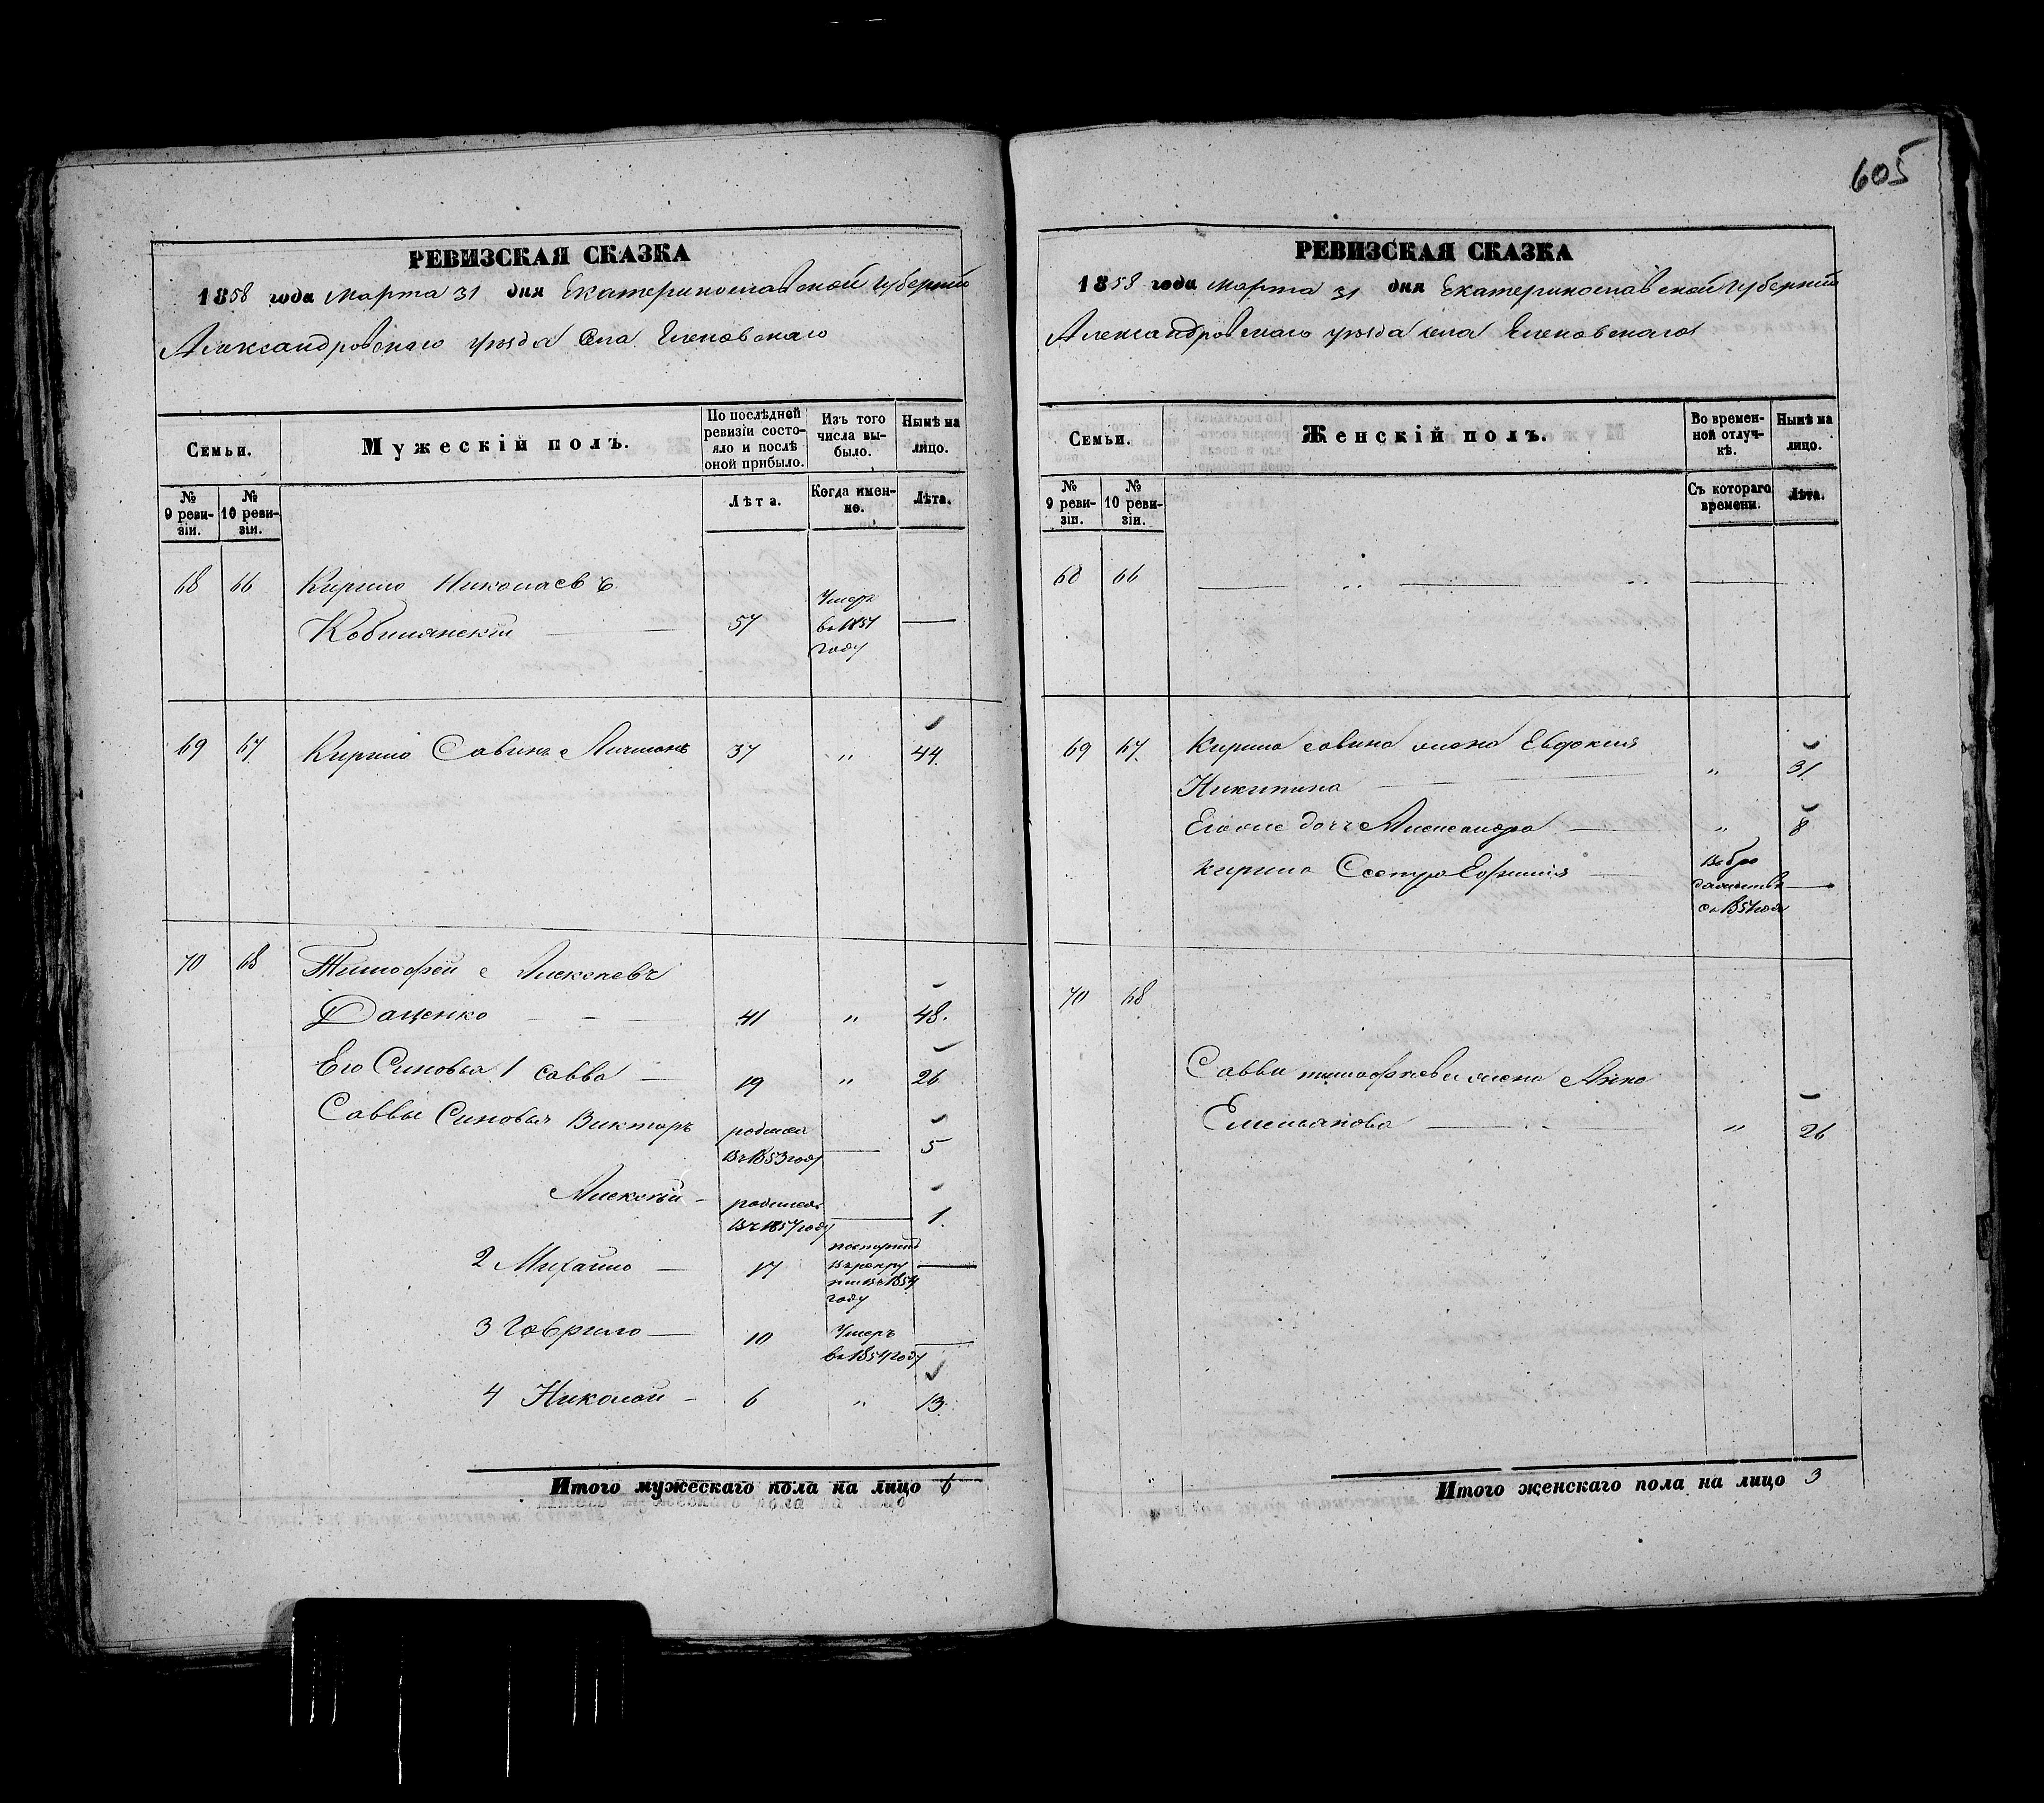 605
РЕВИЗСКАЯ СКАЗКА
1858 года Марта 31 дня Екатеринославской Губернии
Александровскаго уѣзда Села Еленовскаго
Семьи.
Мужескій полъ.
По послѣдней ревизіи состояло и послѣ оной прибыло.
Изъ того числа выбыло.
Нынѣ на лицо.
№ 9 ревизіи.
№ 10 ревизіи.
Лѣта.
Когда именно.
Лѣта.
68 66 Кирило Николаевъ
Кобилянскій 57 Умеръ въ 1857 году
69 67 Кирило Савинъ 37 " 44
70 68 Тимофей Алексѣевъ
Даценко 41 " 48.
Его Синовья 1 Савва 19 " 26
Саввы Синовья Викторъ родился въ 1853 году 5
Алексѣй родился въ 1857 году 1.
2 Михайло 17
3 Гаврило 10 Умеръ въ 1854 году
4 Николай 6 " 13.
Итого мужескаго пола на лицо 6
РЕВИЗСКАЯ СКАЗКА
1858 года Марта 31 дня Екатеринославской Губернии
Александровскаго уѣзда села Еленовскаго
Семьи.
Женскій полъ.
Во временной отлучкѣ.
Нынѣ на лицо.
№ 9 ревизіи.
№ 10 ревизіи.
Съ котораго времени.
Лѣта.
68 66
69 67 Кирила Савина жена Евдокия
Никитина " 31
Его же дочь Александра " 8
Кирила Сестра Ефимия
70 68
Саввы Тимофѣева жена Анна
Емельянова " 26
Итого женскаго пола на лицо 3